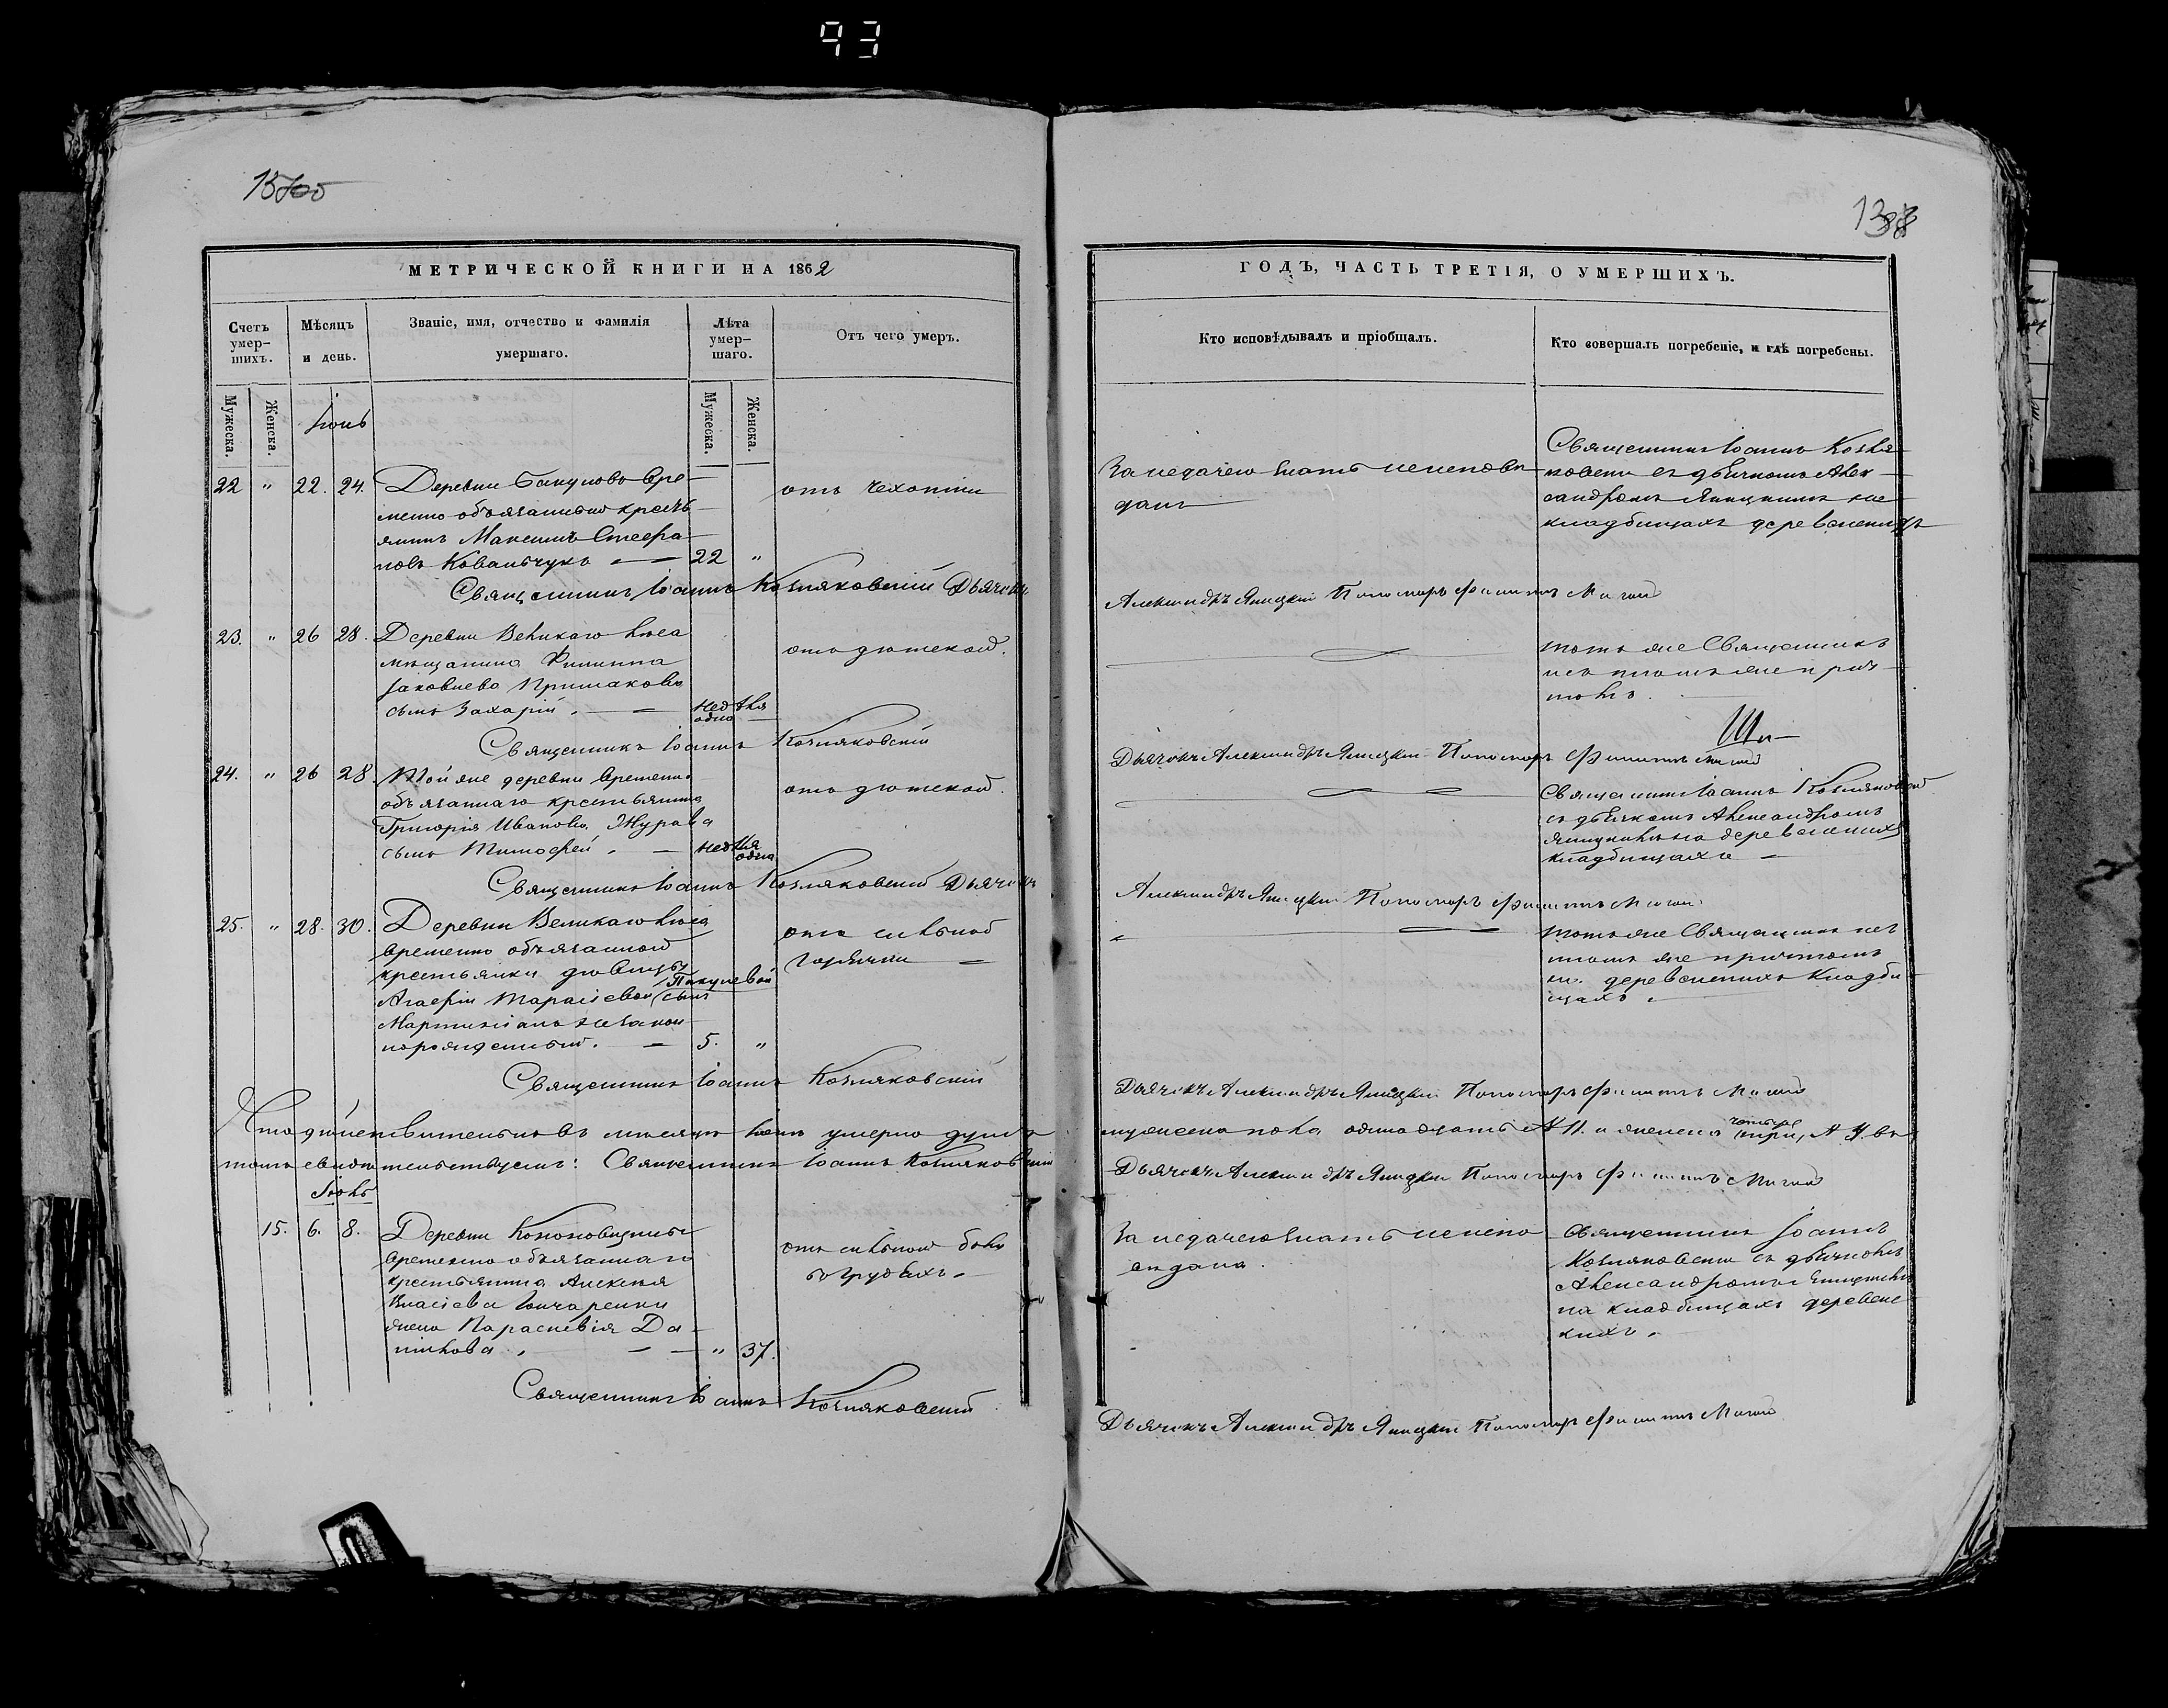 93
138
МЕТРИЧЕСКОЙ КНИГИ НА 1862
ГОДЪ, ЧАСТЬ ТРЕТІЯ, О УМЕРШИХЪ.
Счетъ умер-шихъ.
Мѣсяцъ и день.
Званіе, имя, отчество и фамилія умершаго.
Лѣта умер-шаго.
Отъ чего умеръ.
Кто исповѣдывалъ и пріобщалъ.
Кто совершалъ погребеніе, и гдѣ погребены.
Мужеска.
Женска.
Мужеска.
Женска.
Іюнь
22 " 22. 24. Деревни Бакуново вре-
менно обязанный кресть-
янинъ Максимъ Стефа-
новъ Ковальчукъ — 22 "
отъ чехотки
За недачею знать неисповѣ-
данъ
Священникъ Іоаннъ Козля-
ковскій съ дьячкомъ Алек-
сандромъ Яницкимъ на
кладбищахъ деревенскихъ
Священникъ Іоаннъ Козляковскій Дьячокъ
Александръ Яницкій Пономарь Филиппъ
23. " 26 28. Деревни Великаго Лѣса
мѣщанина Филиппа
Яковлева Примакова
сынъ Захарій. — недѣля
одна
отъ дѣтской.
тотъ же Священникъ
съ тѣмъ же прич-
томъ.
Священникъ Іоаннъ Козляковскій
Дьячокъ Александръ Яницкій Пономарь Филиппъ
24. " 26 28. Той же деревни временно
обязаннаго крестьянина
Григорія Иванова Журава
сынъ Тимофей. — недѣля
одна
отъ дѣтской.
Священникъ Іоаннъ Козляковскій
съ дьячкомъ Александромъ
Яницкимъ на деревенскихъ
кладбищахъ —
Священникъ Іоаннъ Козляковскій Дьячокъ
Александръ Яницкій Пономарь Филиппъ
25. " 28. 30. Деревни Великаго Лѣса
временно обязанной
крестьянки дѣвицы
Агафіи Тарасіевой Пикулевой сынъ
Мартиніанъ незакон-
норожденный. — 5. "
отъ сильной
горячки —
тотъ же Священникъ съ
тѣмъ же причтомъ
на деревенскихъ кладби-
щахъ.
Священникъ Іоаннъ Козляковскій
Дьячокъ Александръ Яницкій Пономарь Филиппъ
Что дѣйствительно въ мѣсяцѣ Іюнѣ умерло душъ
мужеска пола одинадцать № 11. и женска четыре
томъ свидѣтельствуемъ: Священникъ Іоаннъ Козляковскій
Дьячокъ Александръ Яницкій Пономарь Филиппъ
Іюль
15. 6. 8. Деревни Кононовщины
временно обязаннаго
крестьянина Алексѣя
Власіева Гончаренки
жена Параскевія Да-
нилова. — " 37.
отъ сильной боли
въ грудѣхъ. —
За недачею знать неиспо-
вѣдана.
Священникъ Іоаннъ
Козляковскій съ дьячкомъ
Александромъ Яницкимъ
на кладбищахъ деревенс-
кихъ.
Священникъ Іоаннъ Козляковскій
Дьячокъ Александръ Яницкій Пономарь Филиппъ